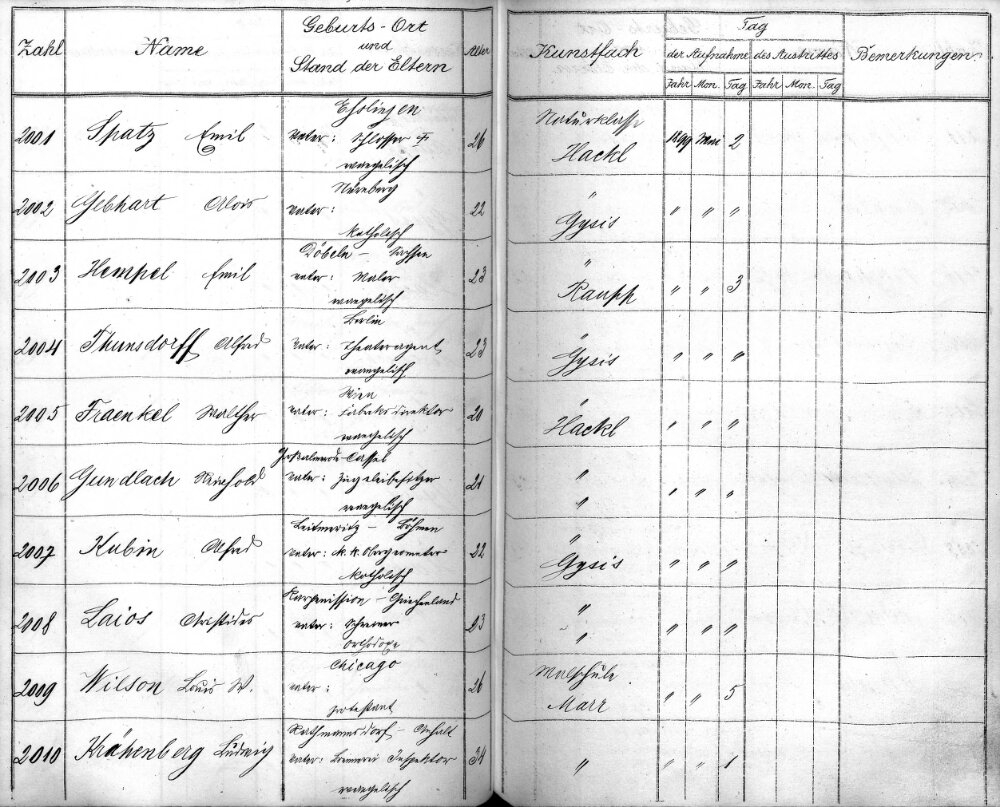 Zahl Name Geburts-Ort und Stand der Eltern Alter Kunstfach Tag der Aufnahme des Austrittes Bemerkungen.
Jahr Mon. Tag Jahr Mon. Tag
Eßlingen Naturklasse
2001 Spatz Emil Vater: Schlosser † 26 Hackl 1899 Mai 2
evangelisch
Nürnberg "
2002 Gebhart Alois Vater: 22 Gysis " " "
katholisch
Döbeln – Sachsen "
2003 Hempel Emil Vater: Maler 23 Raupp " " 3
evangelisch
Berlin "
2004 Thunsdorff Alfred Vater: Theateragent 23 Gysis " " "
evangelisch
Wien "
2005 Fraenkel Walther Vater: Fabriksdirektor 20 Hackl " " "
evangelisch
Cassel "
2006 Gundlach Vater: Ziegeleibesitzer 21 " " " "
evangelisch
Leitmeritz – Böhmen "
2007 Kubin Alfred Vater: k. k. Obergeometer 22 Gysis " " "
katholisch
Karpenission – Griechenland "
2008 Laios Aristides Vater: 23 " " " "
orthodox
Chicago Malschule
2009 Wilson Louis W. Vater: 26 Marr " " 5
protestant
Rathmannsdorf – Anhalt
2010 Krähenberg Ludwig Vater: Inspektor 34 " " " 1
evangelisch